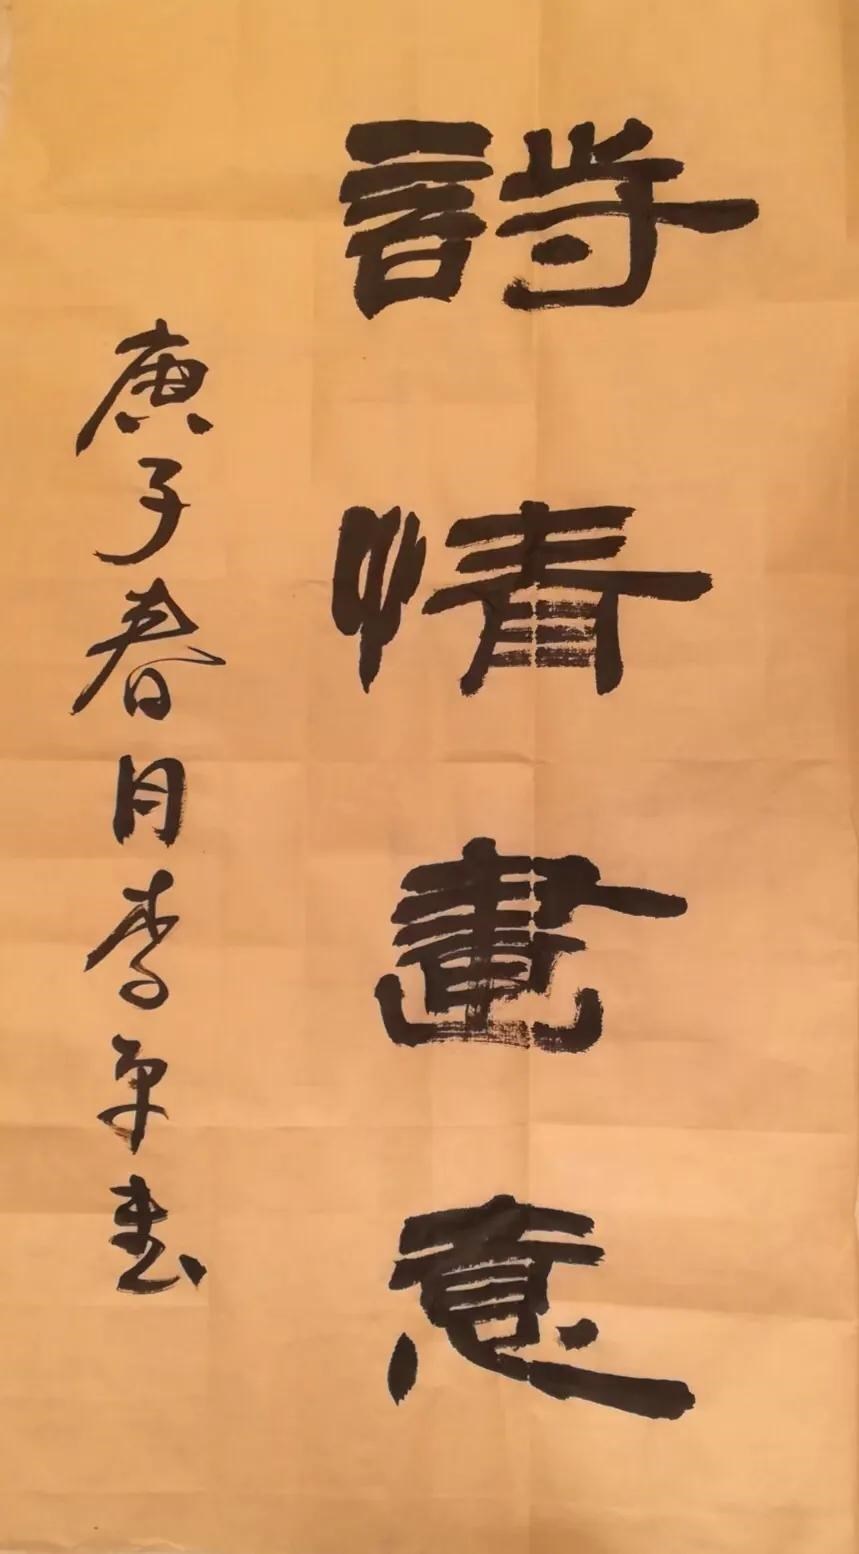 詩情畫意
庚子春月李平書